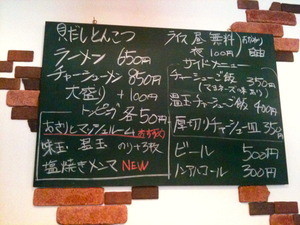 貝だしとんこつ
ラーメン 650円
チャーシューメン 850円
大盛り +100円
トッピング 各50円
あさりとマッシュルーム
味玉 温玉 のり+3枚
塩焼きメンマ NEW
ライス 昼 無料
夜 100円
サイドメニュー
チャーシューご飯 350円
(マヨネーズ味あり)
温玉チャーシューご飯 400円
厚切りチャーシュー皿 350円
ビール 500円
ノンアルコール 300円